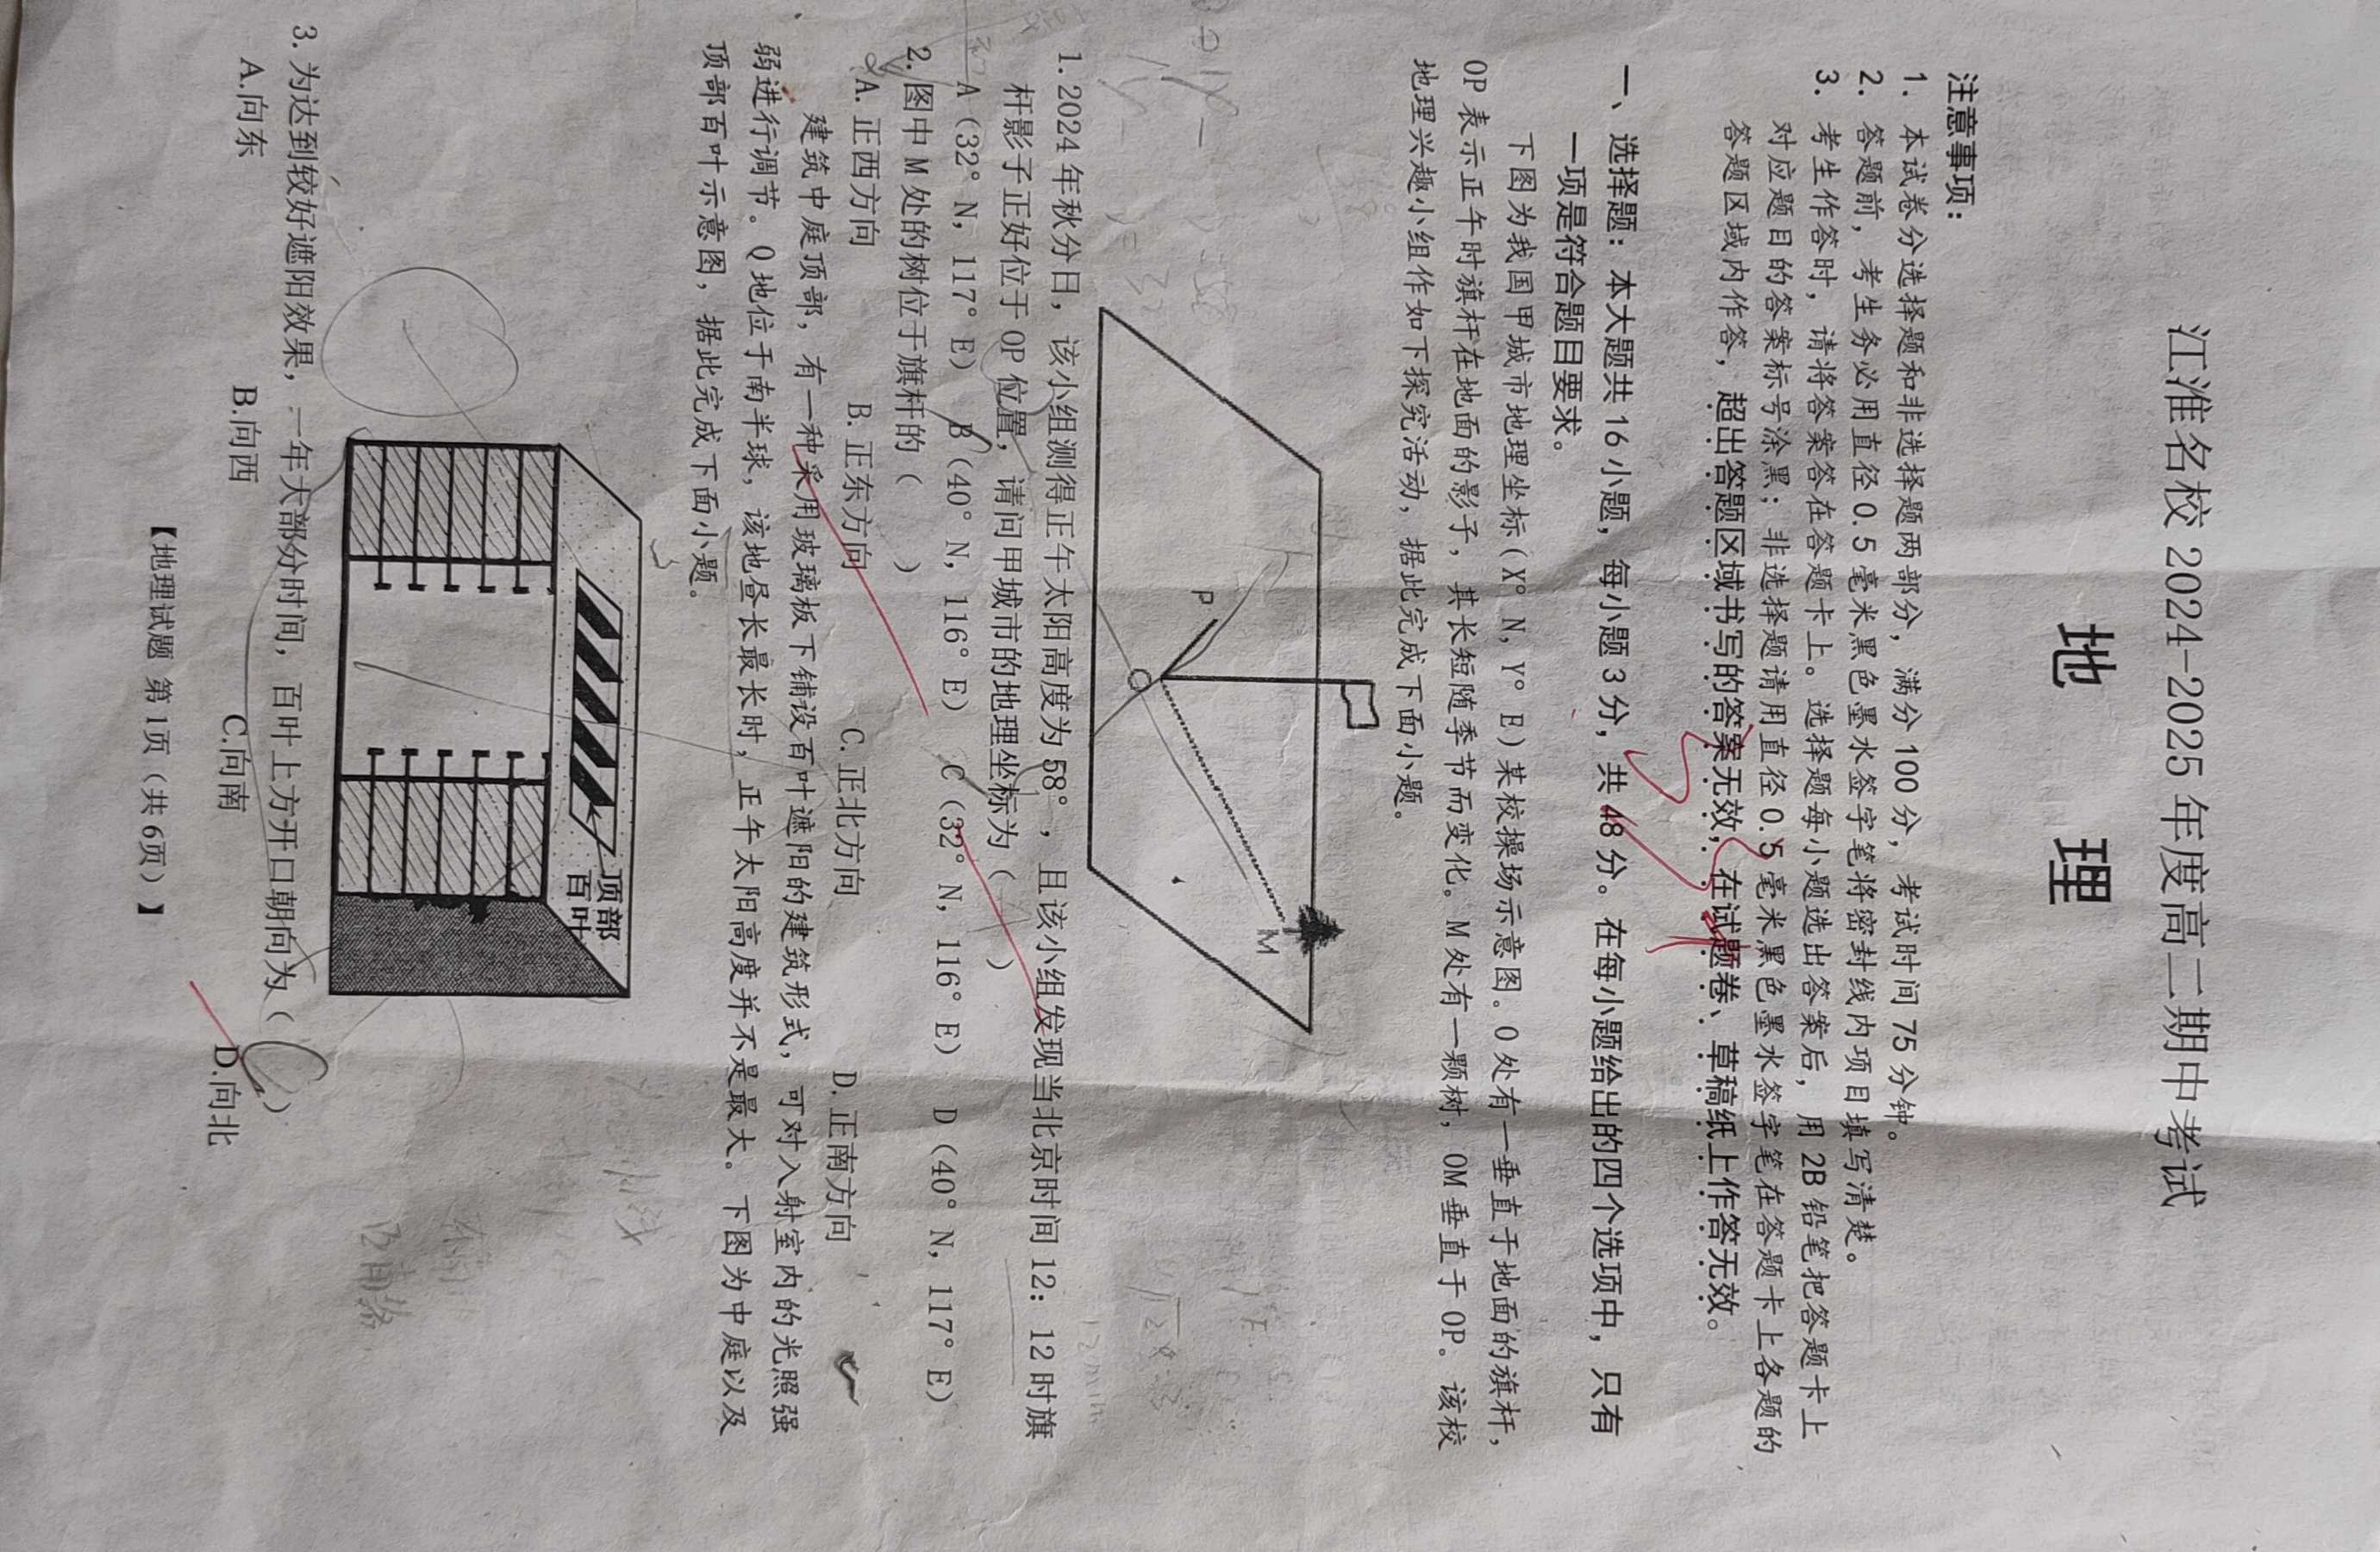 江淮名校 2024-2025 年度高二期中考试
地 理
注意事项：
1. 本试卷分选择题和非选择题两部分，满分 100 分，考试时间 75 分钟。
2. 答题前，考生务必用直径 0.5 毫米黑色墨水签字笔将密封线内项目填写清楚。
3. 考生作答时，请将答案答在答题卡上。选择题每小题选出答案后，用 2B 铅笔把答题卡上
对应题目的答案标号涂黑；非选择题请用直径 0.5 毫米黑色墨水签字笔在答题卡上各题的
答题区域内作答，超出答题区域书写的答案无效，在试题卷、草稿纸上作答无效。
一、选择题：本大题共 16 小题，每小题 3 分，共 48 分。在每小题给出的四个选项中，只有
一项是符合题目要求。
下图为我国甲城市地理坐标(X° N, Y° E)某校操场示意图。O 处有一垂直于地面的旗杆，
OP 表示正午时旗杆在地面的影子，其长短随季节而变化。M 处有一颗树，OM 垂直于 OP。该校
地理兴趣小组作如下探究活动，据此完成下面小题。
P
O
M
1. 2024 年秋分日，该小组测得正午太阳高度为 58°，且该小组发现当北京时间 12：12 时旗
杆影子正好位于 OP 位置，请问甲城市的地理坐标为（ ）
A（32° N，117° E） B（40° N，116° E） C（32° N，116° E） D（40° N，117° E）
2. 图中 M 处的树位于旗杆的（ ）
A. 正西方向 B. 正东方向 C. 正北方向 D. 正南方向
建筑中庭顶部，有一种采用玻璃板下铺设百叶遮阳的建筑形式，可对入射室内的光照强
弱进行调节。Q 地位于南半球，该地昼长最长时，正午太阳高度并不是最大。下图为中庭以及
顶部百叶示意图，据此完成下面小题。
顶部
百叶
3. 为达到较好遮阳效果，一年大部分时间，百叶上方开口朝向为（ ）
A.向东 B.向西 C.向南 D.向北
【地理试题 第 1 页（共 6 页）】